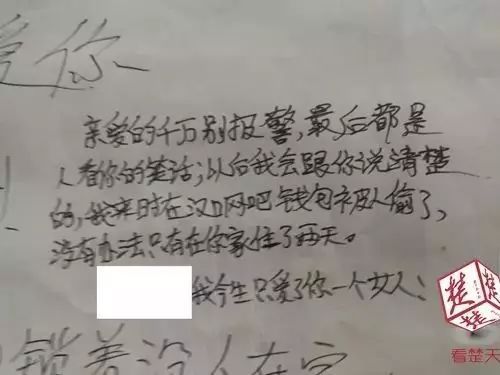 爱你
亲爱的千万别报警,最后都是
人看你的笑话;以后我会跟你说清楚
的,我来时在汉口网吧钱包被人偷了,
没有办法只有在你家住了两天。
我今生只爱了你一个女人;
锁着没人在家
楚
看楚天